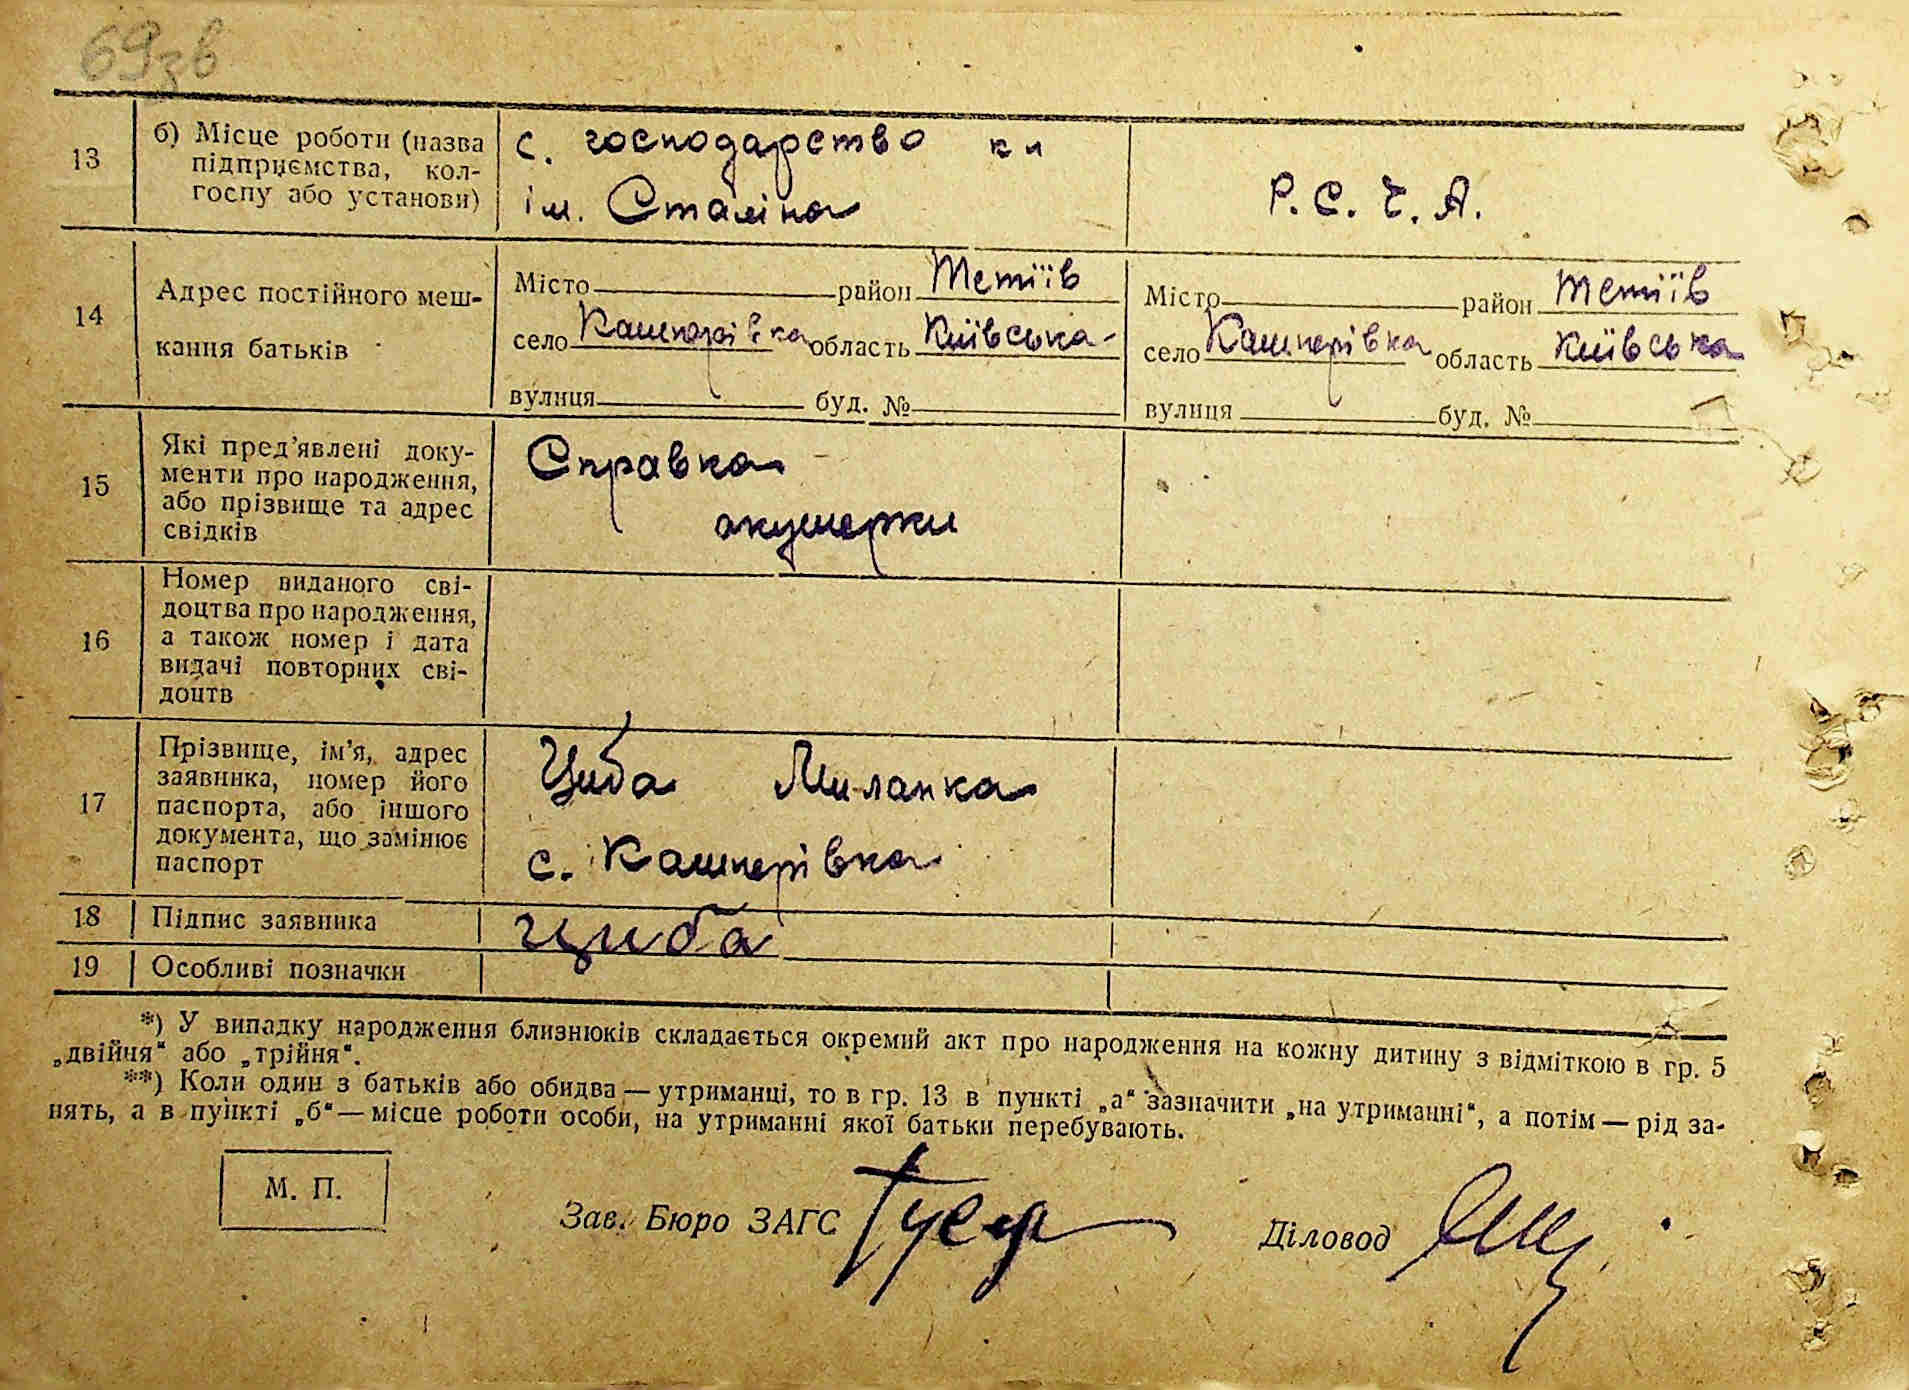 69зв
13
б) Місце роботи (назва
підприємства, кол-
госпу або установи)
с. господарство
ім. Сталіна
Р. С. Ч. А.
14
Адрес постійного меш-
кання батьків
Місто район Тетіїв
село Кашперівка область Київська
вулиця буд. №
Місто район Тетіїв
село Кашперівка область Київська
вулиця буд. №
15
Які пред'явлені доку-
менти про народження,
або прізвище та адрес
свідків
Справка
акушерки
16
Номер виданого сві-
доцтва про народження,
а також номер і дата
видачі повторних сві-
доцтв
17
Прізвище, ім'я, адрес
заявника, номер його
паспорта, або іншого
документа, що замінює
паспорт
Циба Миланка
с. Кашперівка
18
Підпис заявника
Циба
19
Особливі позначки
*) У випадку народження близнюків складається окремий акт про народження на кожну дитину з відміткою в гр. 5
„двійня“ або „трійня“.
**) Коли один з батьків або обидва — утриманці, то в гр. 13 в пункті „а“ зазначити „на утриманні“, а потім — рід за-
нять, а в пункті „б“ — місце роботи особи, на утриманні якої батьки перебувають.
М. П.
Зав. Бюро ЗАГС
Діловод